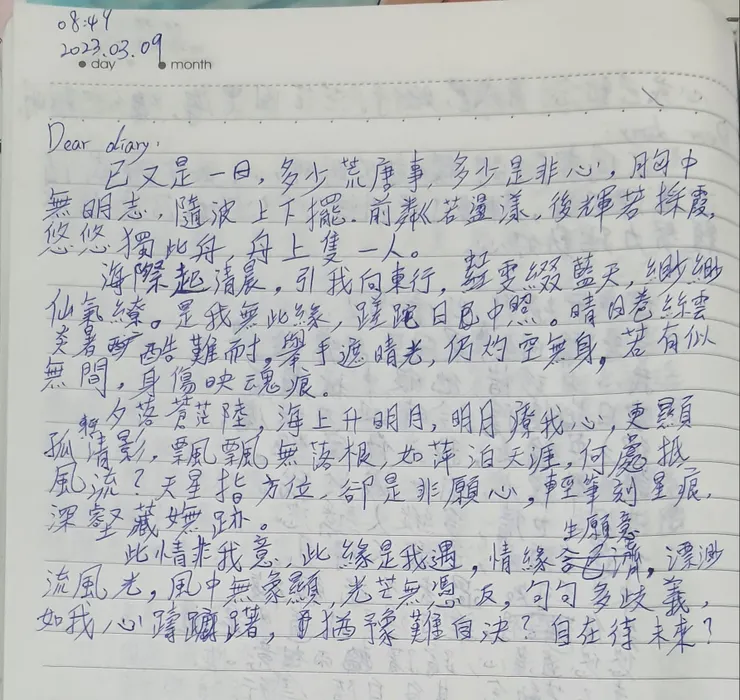 08:44
2023.03.09
day month
Dear diary,
已又是一日，多少荒唐事，多少是非心，胸中
無明志，隨波上下擺．前粼粼若盪漾，後輝若採霞，
悠悠獨此舟，舟上隻一人。
海際起清晨，引我向東行，虹雯綴藍天，緲緲
仙氣繚。是我無此緣，蹉跎日已中照。晴日卷絲雲
炎暑酷難耐，舉手遮晴光，仍灼空無身，若有似
無間，身傷映魂痕。
夕落蒼茫陸，海上升明月，明月療我心，更顯
孤清影，飄飄無落根，如萍泊天涯，何處抵
風流？天星指方位，卻是非願心，輕筆刻星痕，
深壑藏嫵跡。
生願意
此情非我意，此緣是我遇，情緣已濟，漂渺
流風光，風中無象顯，光芒無憑反，句句多歧義，
如我心躊躇，猶豫難自決？自在待未來？